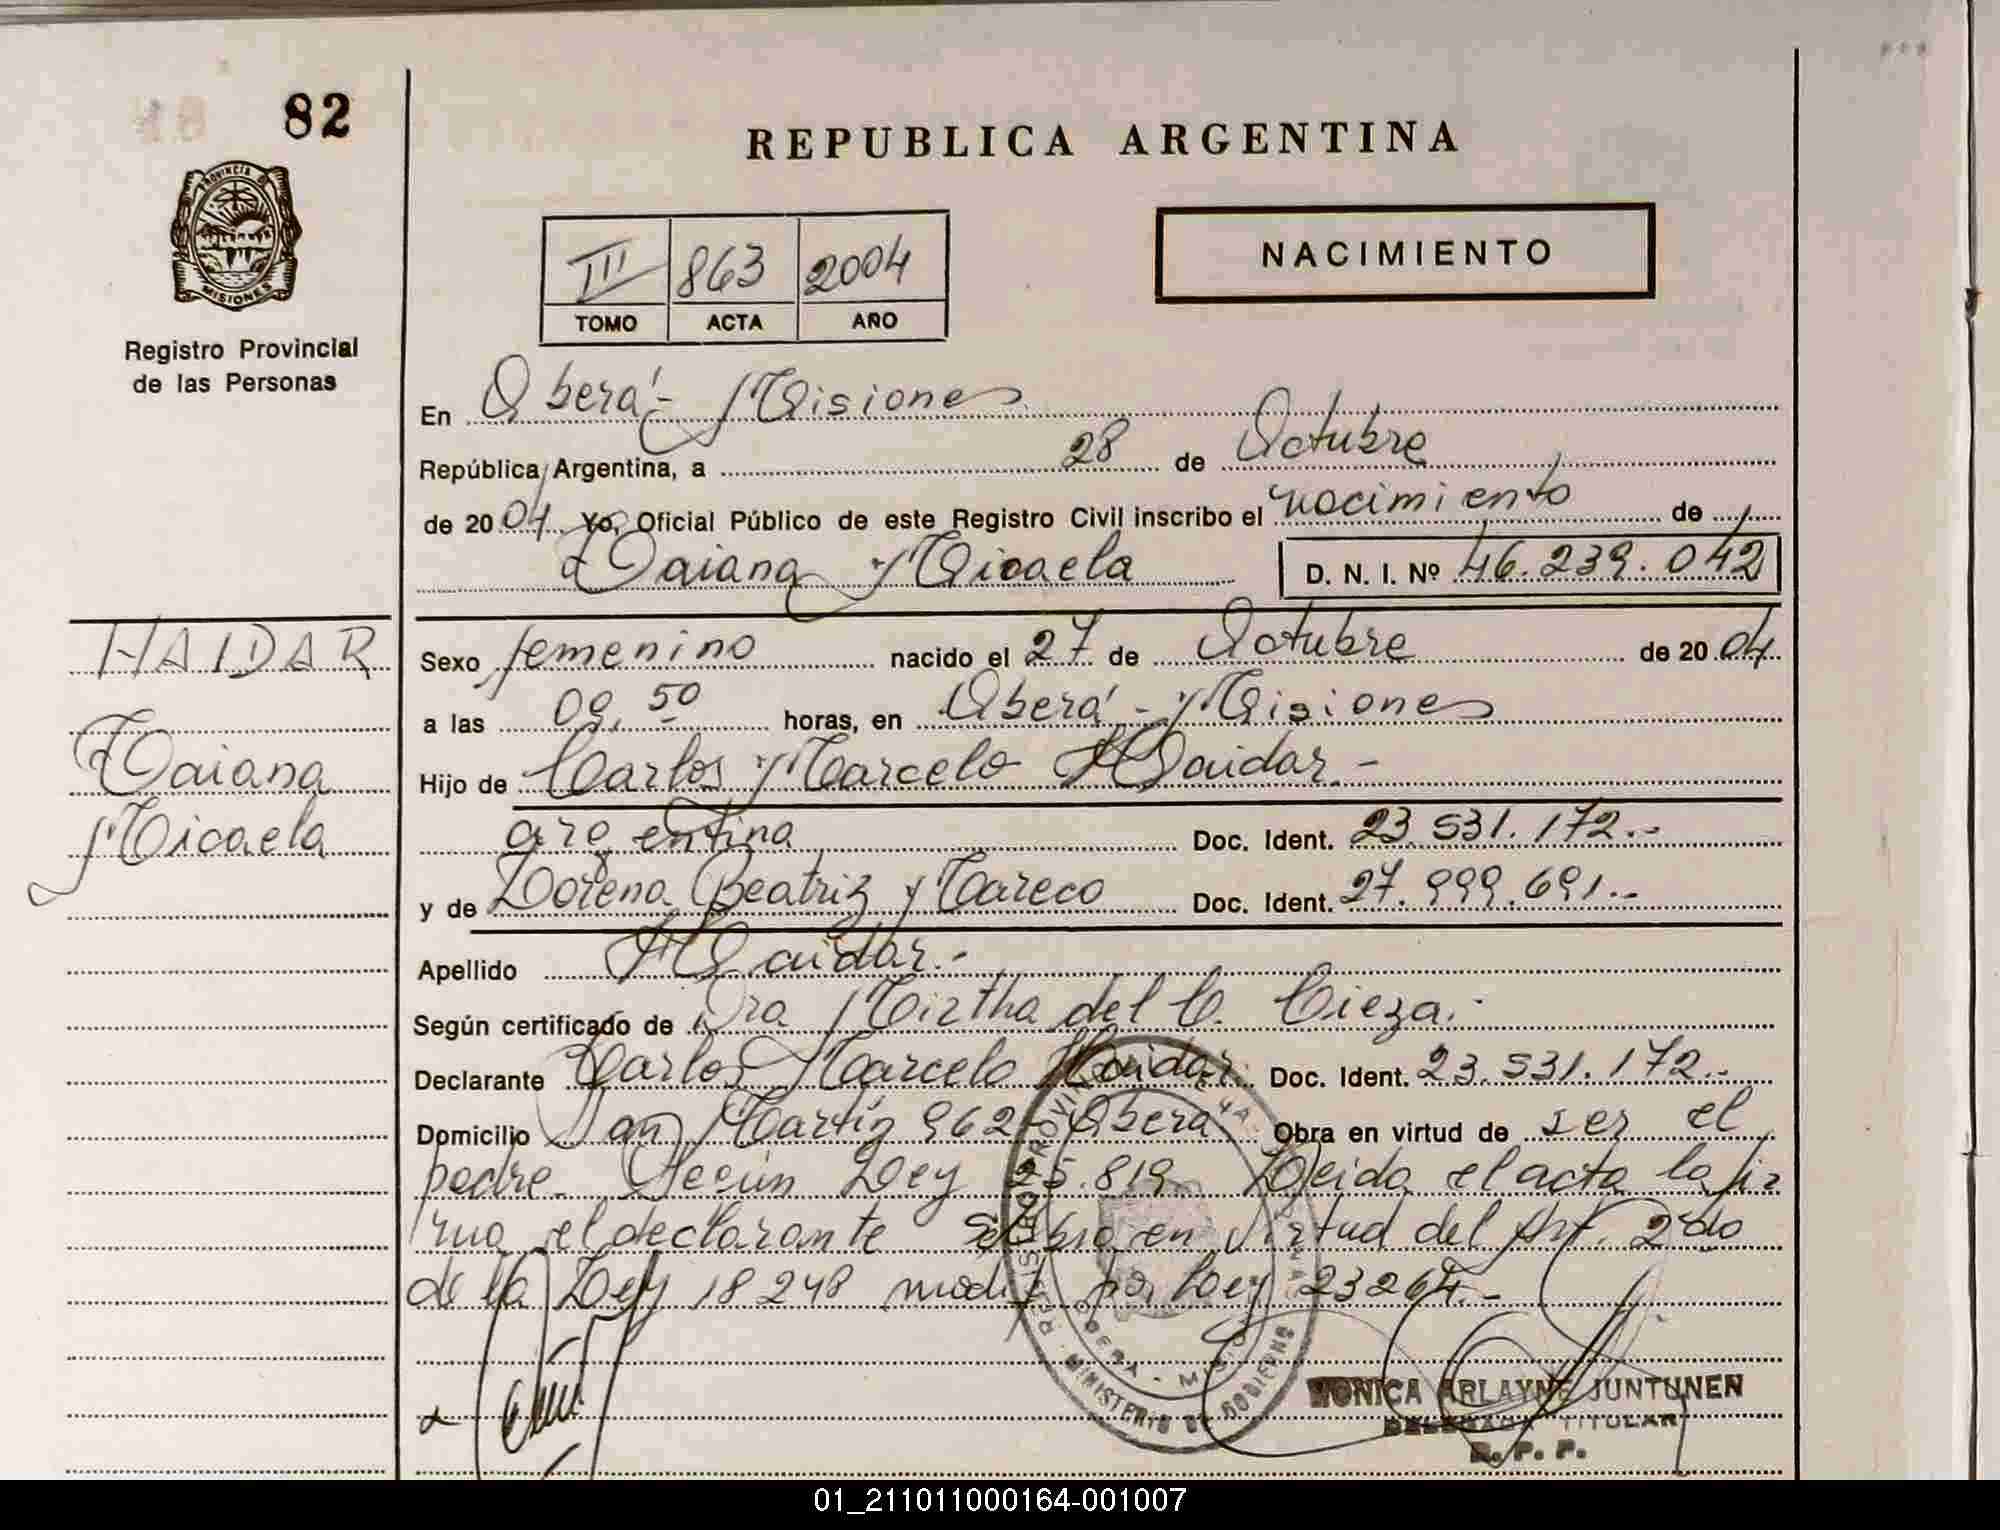 82
REPUBLICA ARGENTINA
PROVINCIA DE
MISIONES
Registro Provincial
de las Personas
III 863 2004
TOMO ACTA AÑO
NACIMIENTO
En Oberá - Misiones
República Argentina, a 28 de Octubre
de 2004 Yo, Oficial Público de este Registro Civil inscribo el nacimiento de
Daiana Micaela D. N. I. Nº 46.239.042
HAIDAR
Daiana
Micaela
Sexo femenino nacido el 27 de Octubre de 2004
a las 09,50 horas, en Oberá - Misiones
Hijo de Carlos Marcelo Haidar.-
argentina Doc. Ident. 23.531.172.-
y de Lorena Beatriz Mareco Doc. Ident. 27.999.691.-
Apellido Haidar.-
Según certificado de Dra Mirtha del C. Cieza.-
Declarante Carlos Marcelo Haidar. Doc. Ident. 23.531.172.-
Domicilio San Martín 962 - Oberá Obra en virtud de ser el
padre. Según Ley 25.819 Leida el acta la fir
ma el declarante en virtud del Art. 2do
de la Ley 18248 modif por Ley 23264.-
MINISTERIO DE GOBIERNO
OBERA - MISIONES
MONICA ARLAYNE JUNTUNEN
DELEGADA TITULAR
R. P. P.
01_211011000164-001007